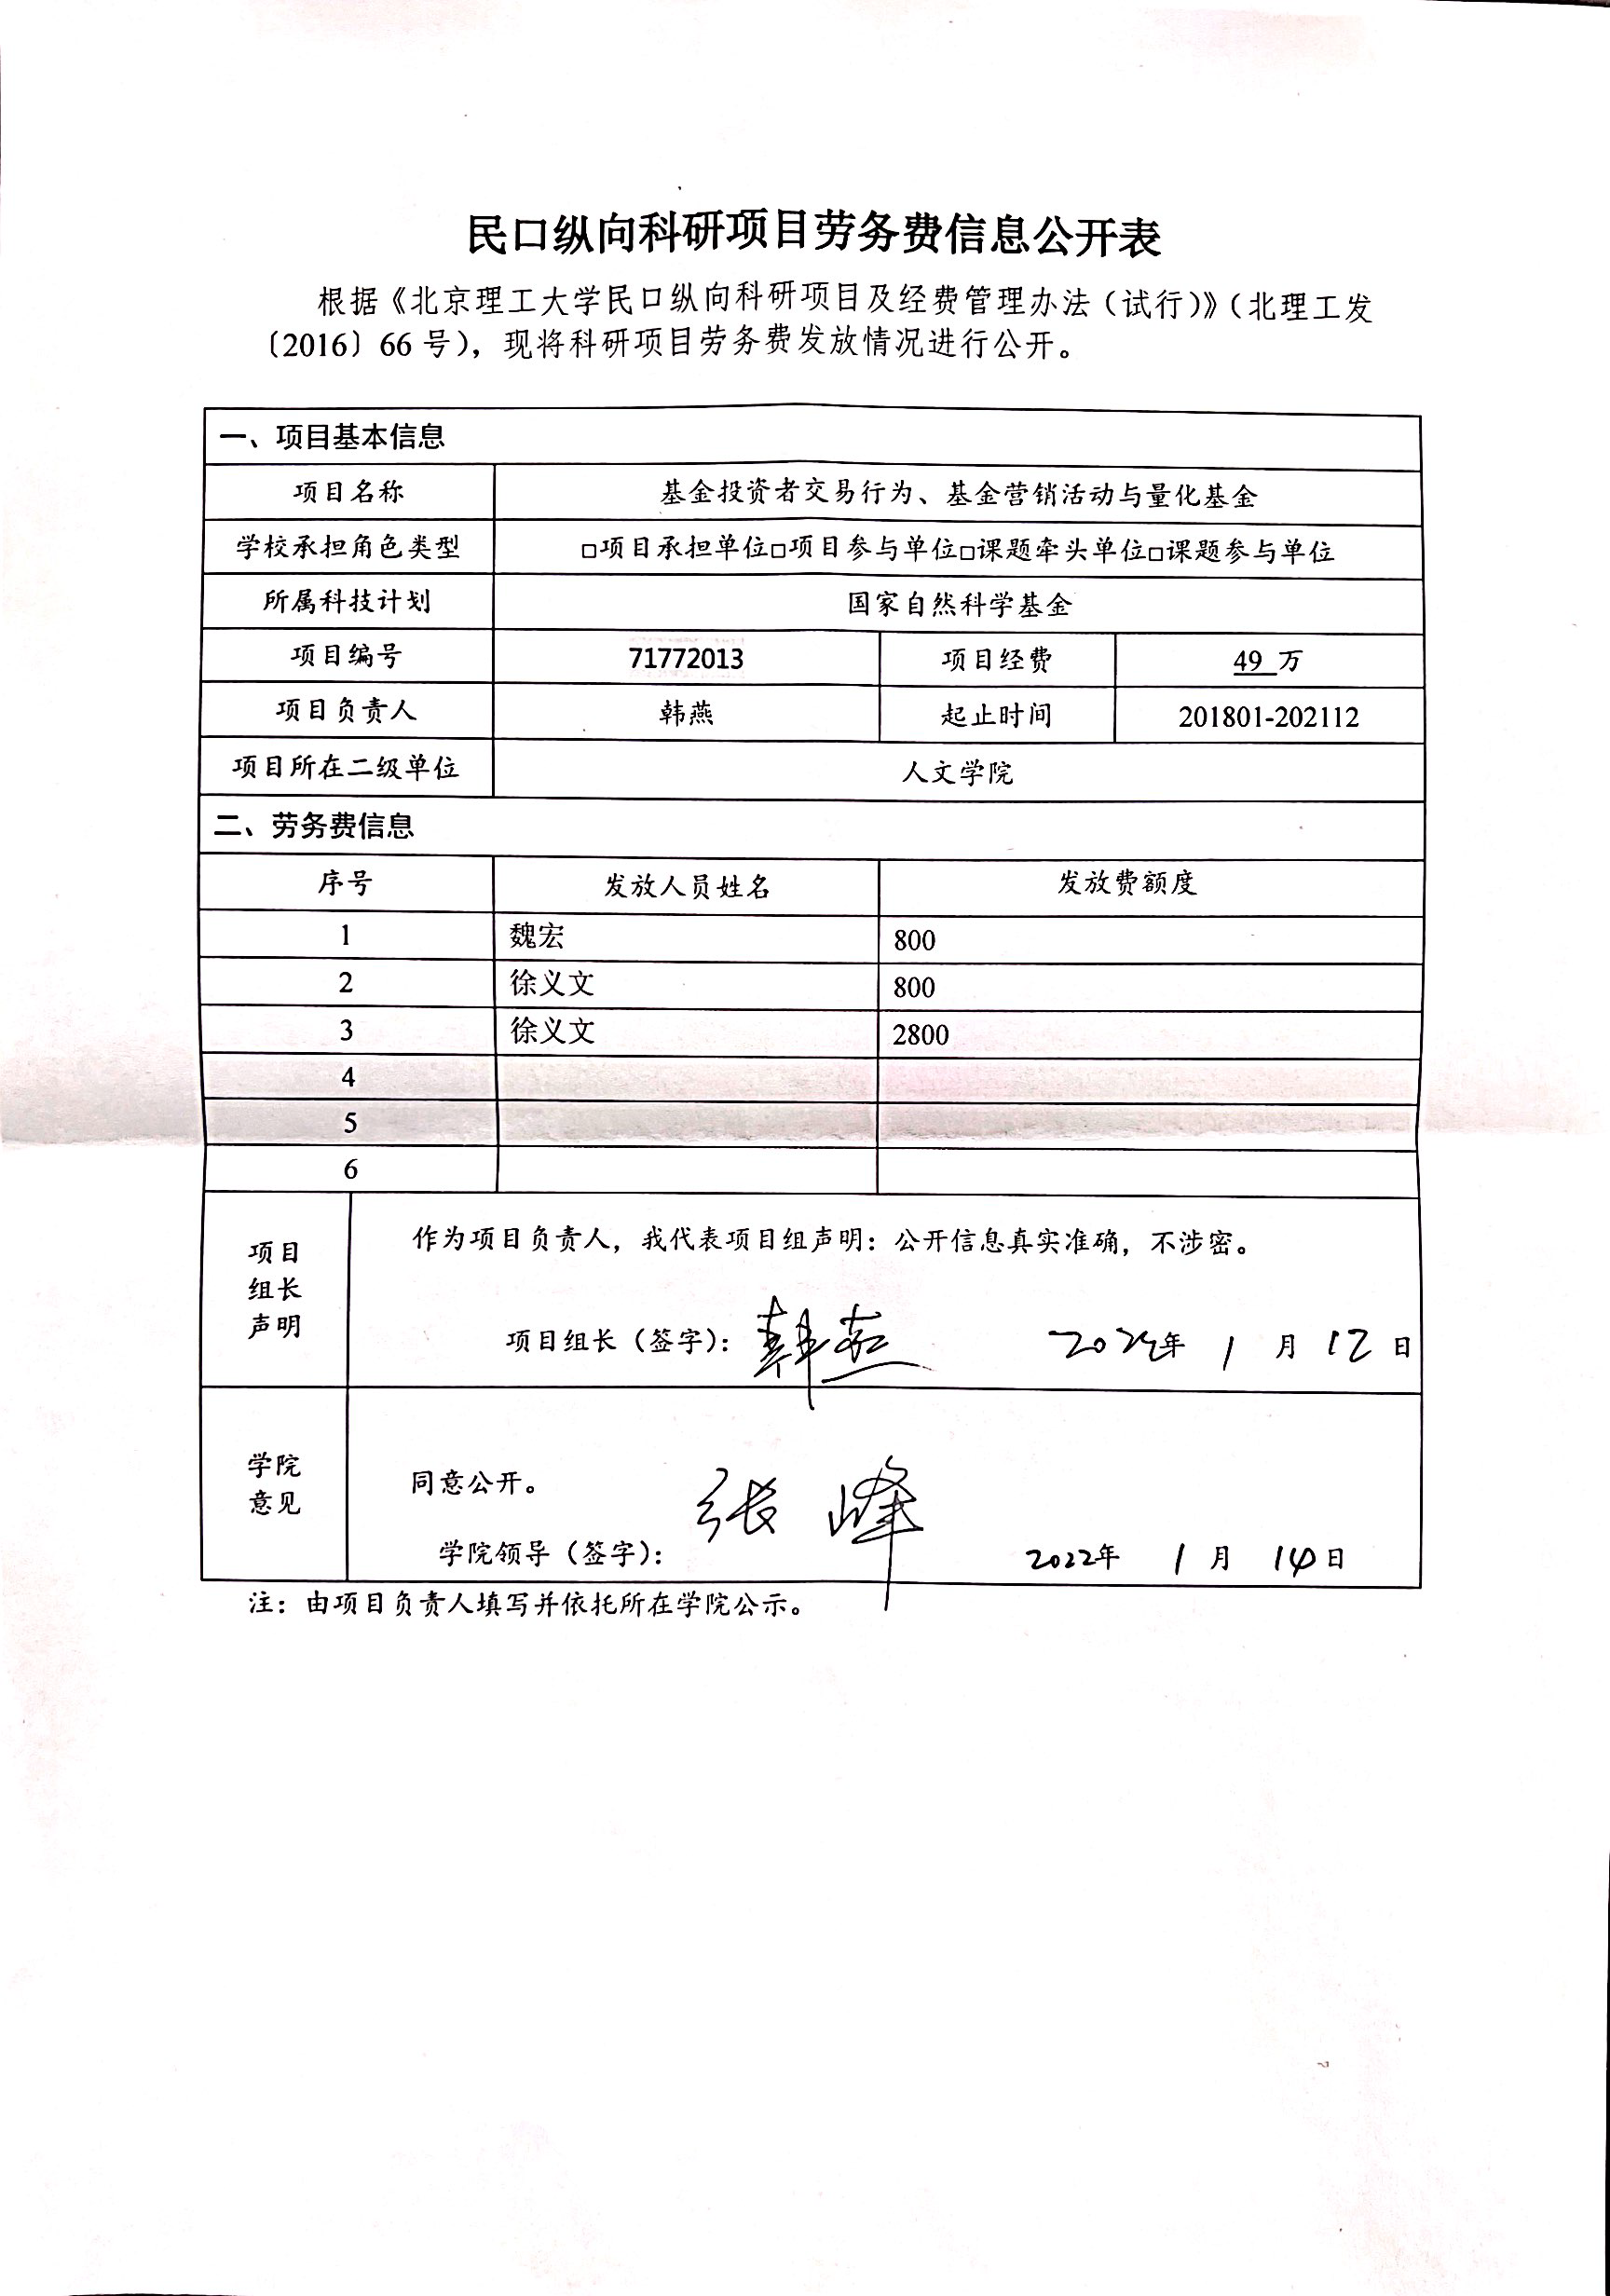 民口纵向科研项目劳务费信息公开表
根据《北京理工大学民口纵向科研项目及经费管理办法（试行）》（北理工发
〔2016〕66 号），现将科研项目劳务费发放情况进行公开。
一、项目基本信息
项目名称 基金投资者交易行为、基金营销活动与量化基金
学校承担角色类型 □项目承担单位□项目参与单位□课题牵头单位□课题参与单位
所属科技计划 国家自然科学基金
项目编号 71772013 项目经费 49 万
项目负责人 韩燕 起止时间 201801-202112
项目所在二级单位 人文学院
二、劳务费信息
序号 发放人员姓名 发放费额度
1 魏宏 800
2 徐义文 800
3 徐义文 2800
4
5
6
项目
组长
声明
作为项目负责人，我代表项目组声明：公开信息真实准确，不涉密。
项目组长（签字）：韩燕 2022年 1 月 12 日
学院
意见
同意公开。
学院领导（签字）：张峰 2022年 1 月 14日
注：由项目负责人填写并依托所在学院公示。